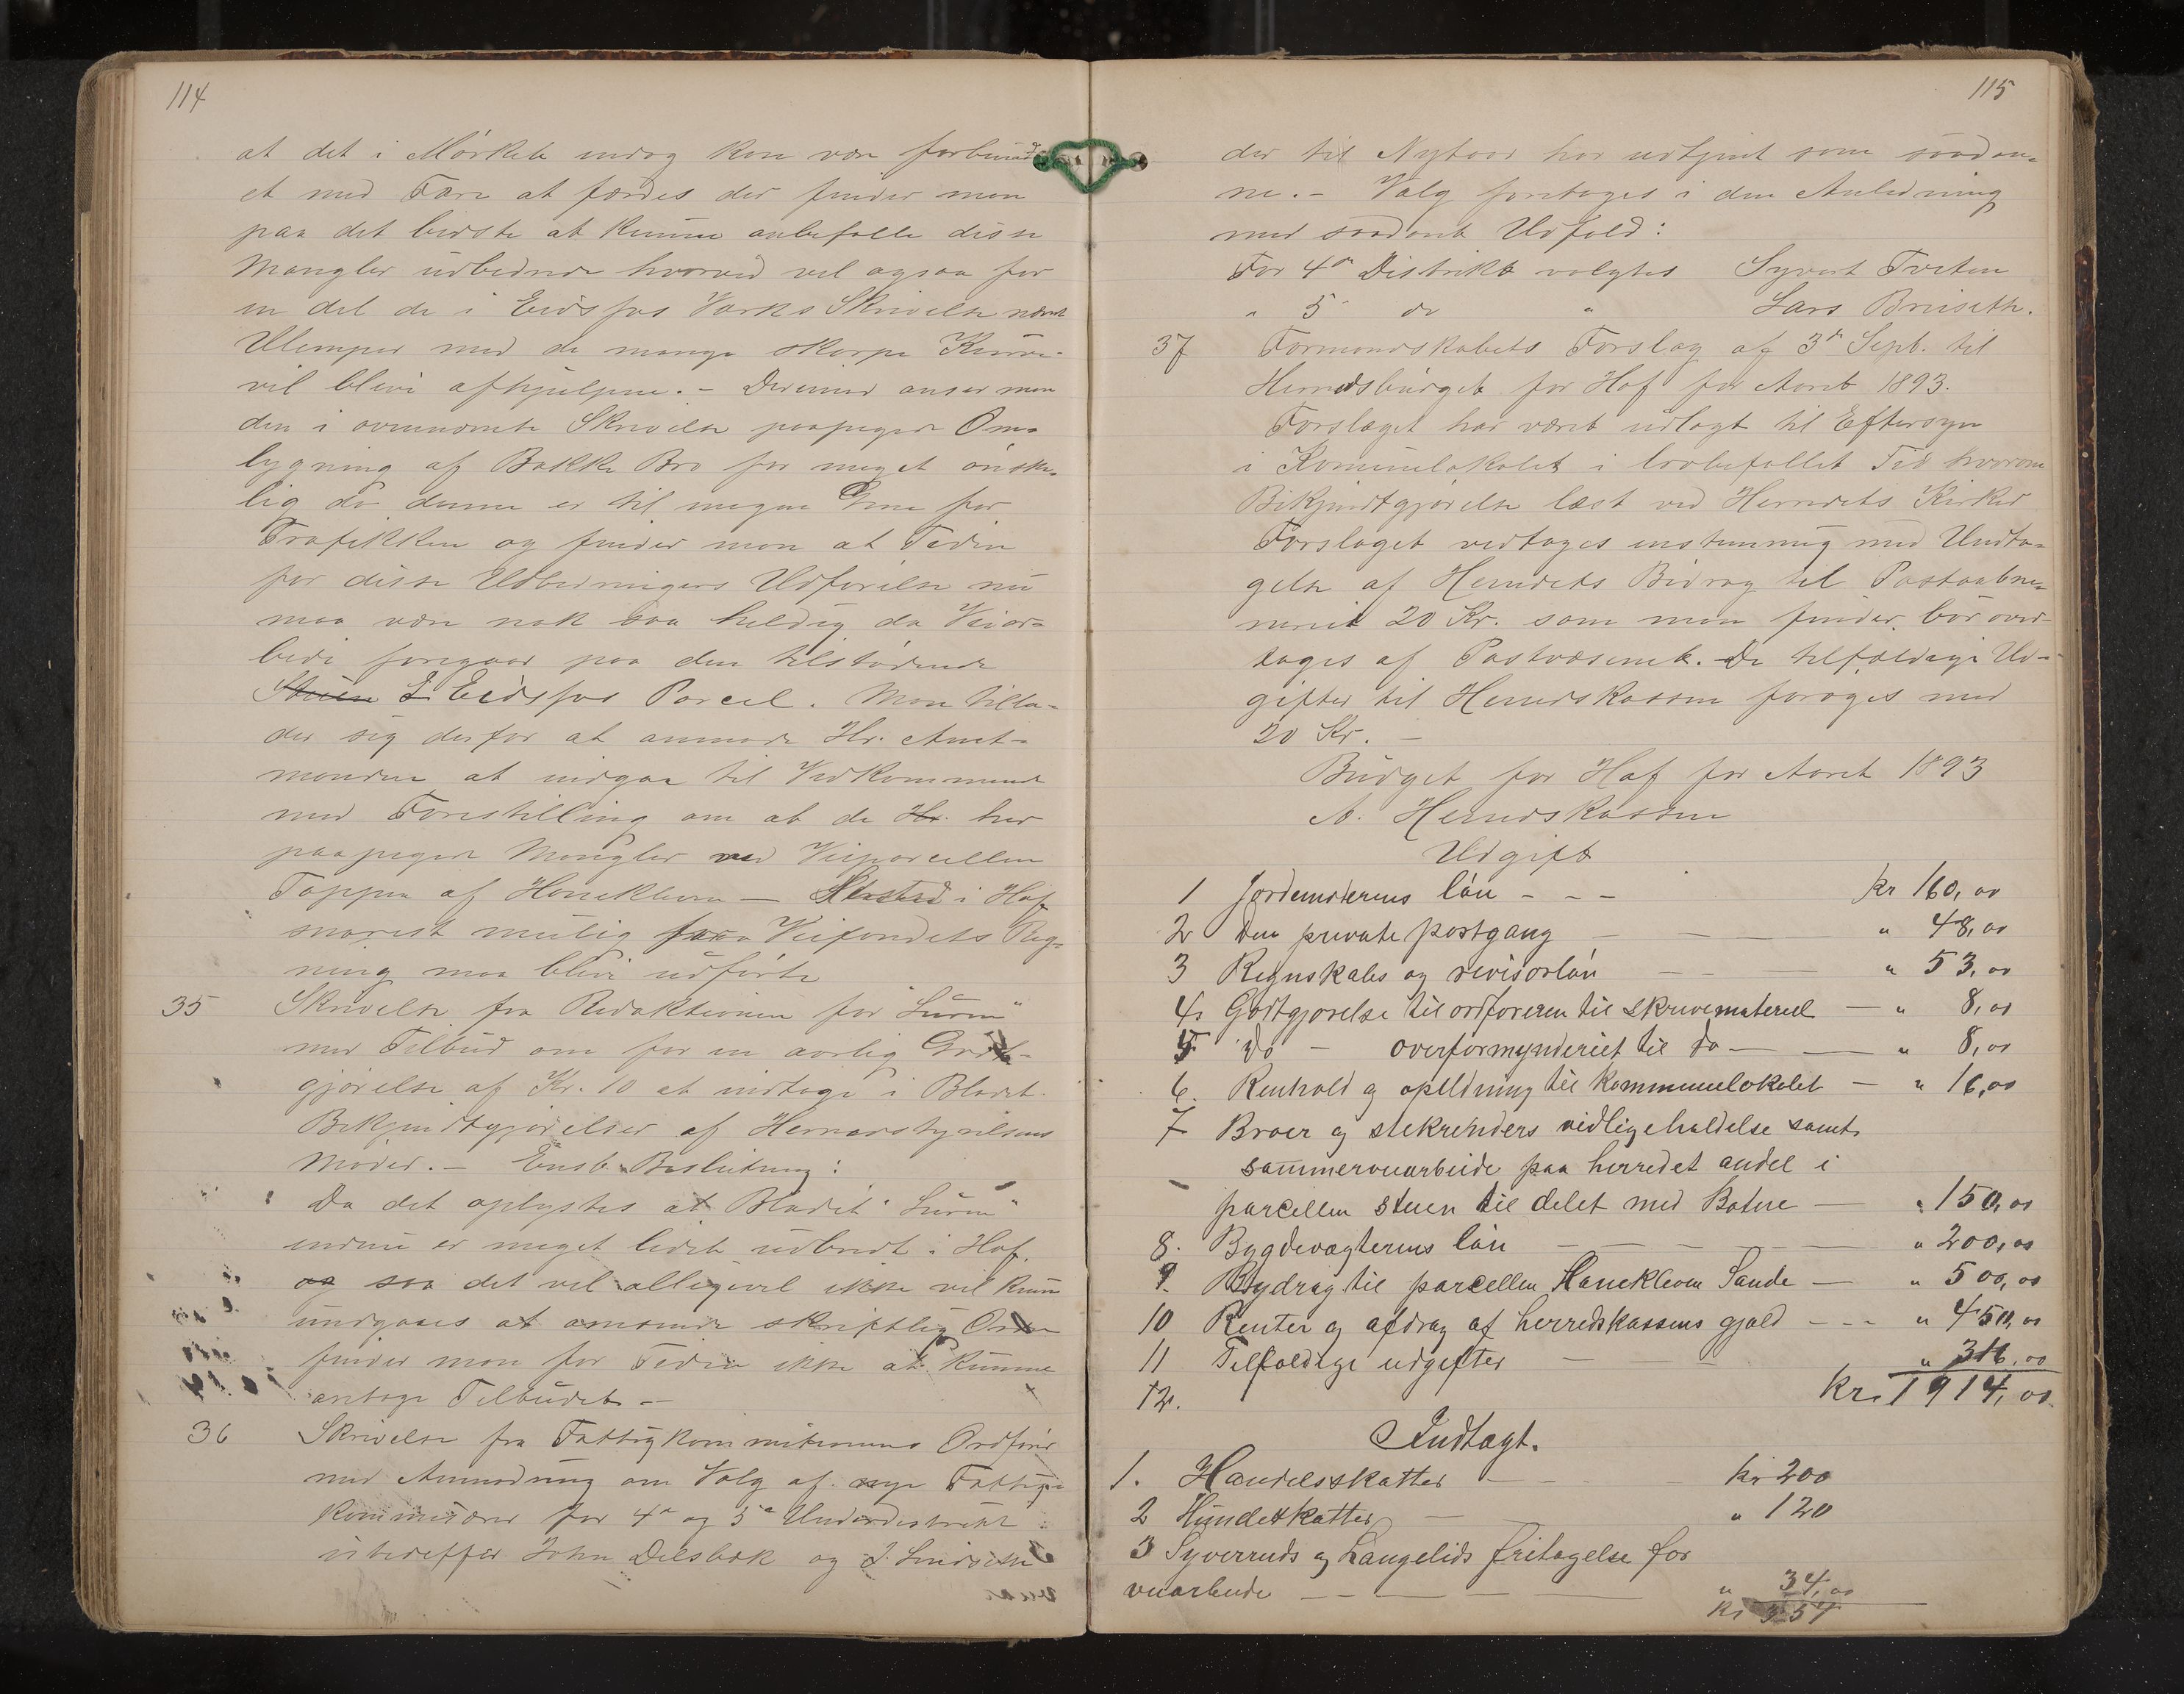 114
at det i Mørket endog kan være forbund
et med Fare at færdes der finder man
paa det bedste at kunne anbefalle disse
Mangler udbedrede hvorved vel ogsaa for
en del de i Eidsfos Værks Skrivelse nævnte
Ulemper med de mange skarpe Kurve
vil blive afhjulpne. - Derimod anser man
den i ovennævnte Skrivelse paapegede Om=
bygning af Bakke Bro for meget ønske=
lig da denne er til megen Gene for
Trafikken og finder man at Tiden
for disse Udbedringers Udførelse nu
maa være nok saa heldig da Veiar=
beide foregaar paa den tilstødende
Eidsfos Parcel. Man tilla=
der sig derfor at anmode Hr. Amt=
manden at indgaa til Vedkommende
med Forestilling om at de Hr. her
paapegede Mangler ved Veiparcellen
Toppen af Hanekleven — i Hof
snarest mulig for Veifondets Reg=
ning maa blive udførte
35 Skrivelse fra Redaktionen for "Luren"
med Tilbud om for en aarlig Godt=
gjørelse af Kr. 10 at indtage i Bladet
Bekjendtgjørelser af Herredsstyrelsens
Møder. - Enst. Beslutning:
Da det oplystes at Bladet "Luren"
endnu er meget lidet udbredt i Hof.
og saa det vel alligevel ikke vil kunne
undgaaes at anvende skriftlig Ordre
finder man for Tiden ikke at kunne
antage Tilbudet. -
36 Skrivelse fra Fattigkommissionens Ordfører
med Anmodning om Valg af nye Fattig=
kommisærer for 4de og 5te Underdistrikt
istedetfor John Delsbæk og
115
der til Nytaar har udtjent som saadan=
ne. - Valg foretages i den Anledning
med saadant Udfald:
For 4de Distrikt valgtes Syvert Tveten
" 5 do " Lars Bruseth.
37 Formandskabets Forslag af 3de Sept. til
Herredsbudget for Hof for Aaret 1893.
Forslaget har været udlagt til Eftersyn
i Kommunelokalet i lovbefallet Tid hvorom
Bekjendtgjørelse læst ved Herredets Kirker
Forslaget vedtages enstemmig med Undta=
gelse af Herredets Bidrag til Postaabne=
riet 20 Kr. som man finder bør over=
tages af Postvæsenet. De tilfældige Ud=
gifter til Herredskassen forøges med
20 Kr. -
Budget for Hof for Aaret 1893
A. Herredskassen
Udgift
1 Jordemoderens løn - - - kr 160,00
2 Den private postgang — — " 48,00
3 Regnskabs og revisorløn — — " 53,00
4. Godtgjørelse til ordføreren til skrivemateriel — " 8,00
5 Do - overformynderiet til do — — " 8,00
6. Renhold og opildning til kommunelokalet — " 16,00
7 Broer og stekrenders vedligeholdelse samt
sammerveiarbeide paa herredet andel i
parcellen stuen til delet med Botne — " 150,00
8. Bygdevægterens løn — — — " 200,00
9. Bydrag til parcellen Hanekleven Sande — " 500,00
10 Renter og afdrag af herredskassens gjæld - - - " 450,00
11 Tilfældige udgifter — — " 316,00
12. Kr. 1914,00
Indtægt.
1. Handelsskatter — — kr 200
2 Hundeskatter — — " 120
3 Syverruds og Langelids fritagelse for
veiarbeide — — — " 34,00
Kr 354